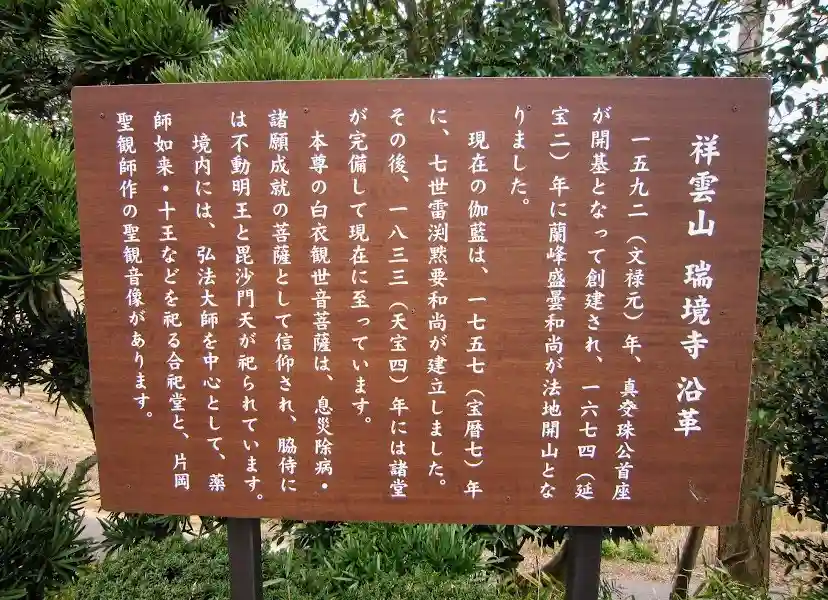 祥雲山 瑞境寺 沿革
一五九二（文禄元）年、真奕珠公首座
が開基となって創建され、一六七四（延
宝二）年に蘭峰盛曇和尚が法地開山とな
りました。
現在の伽藍は、一七五七（宝暦七）年
に、七世雷渕黙要和尚が建立しました。
その後、一八三三（天宝四）年には諸堂
が完備して現在に至っています。
本尊の白衣観世音菩薩は、息災除病・
諸願成就の菩薩として信仰され、脇侍に
は不動明王と毘沙門天が祀られています。
境内には、弘法大師を中心として、薬
師如来・十王などを祀る合祀堂と、片岡
聖観師作の聖観音像があります。